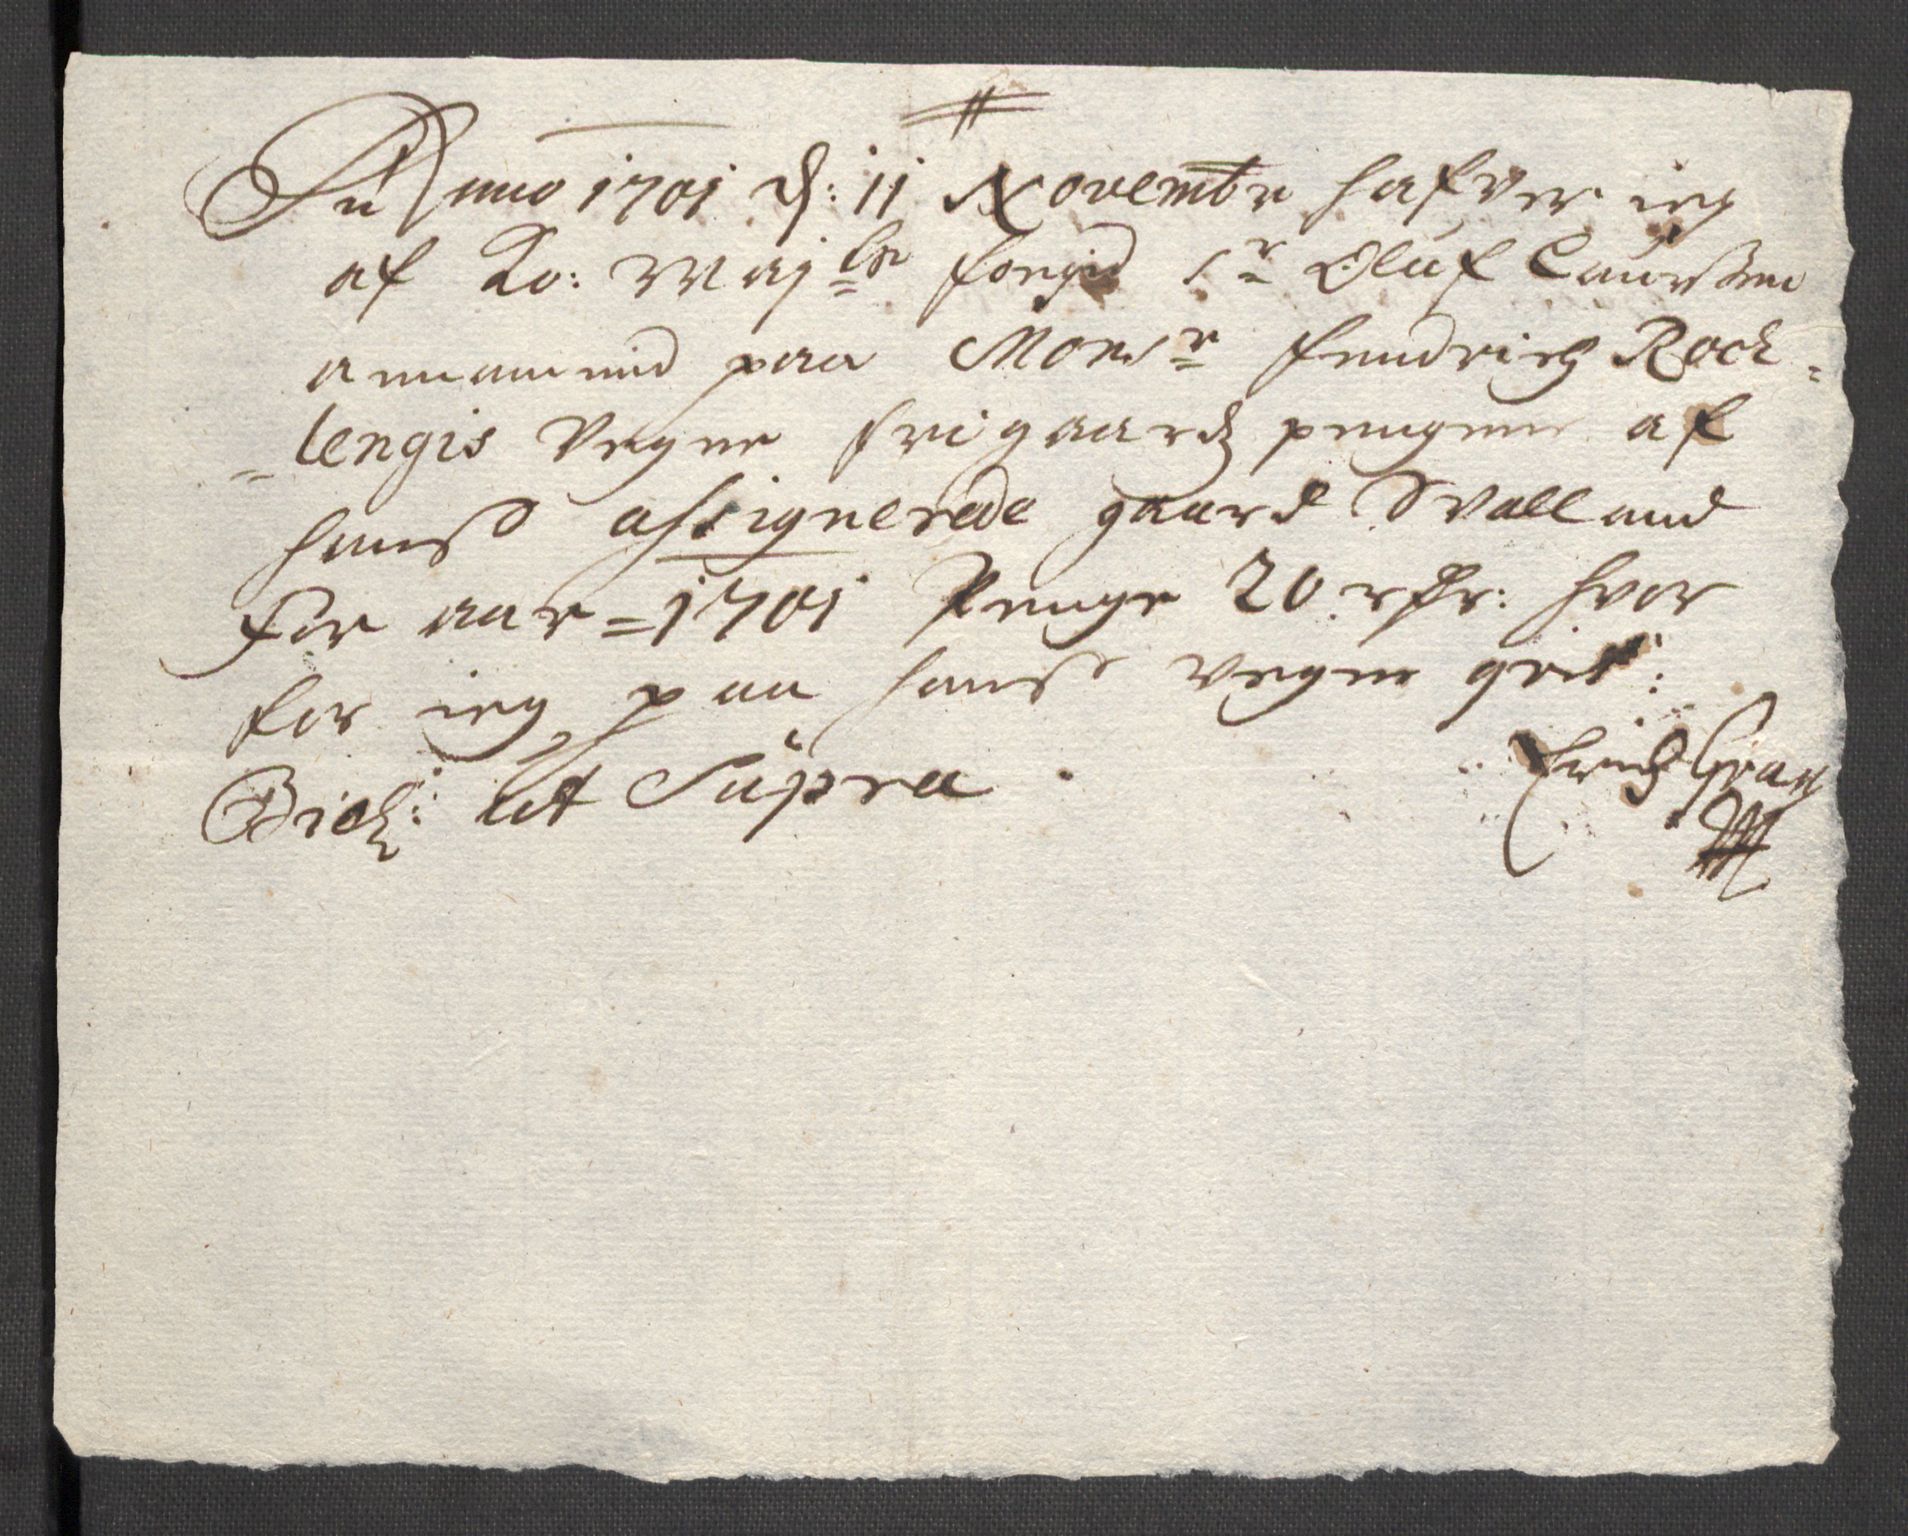 Anno 1701 d: 11 Novembr hafver ieg
af Ko: Maj:ts fogid Sr Oluf Laurssen
annammed paa Monsr Hendrich Rock=
=lengis Vegne frigaards pengene af
hanß assignerede gaard Svalland
for aar=1701 Penge 20 rdr: hvor
for ieg paa hanß vegne qvit:
ut Supra. Erich